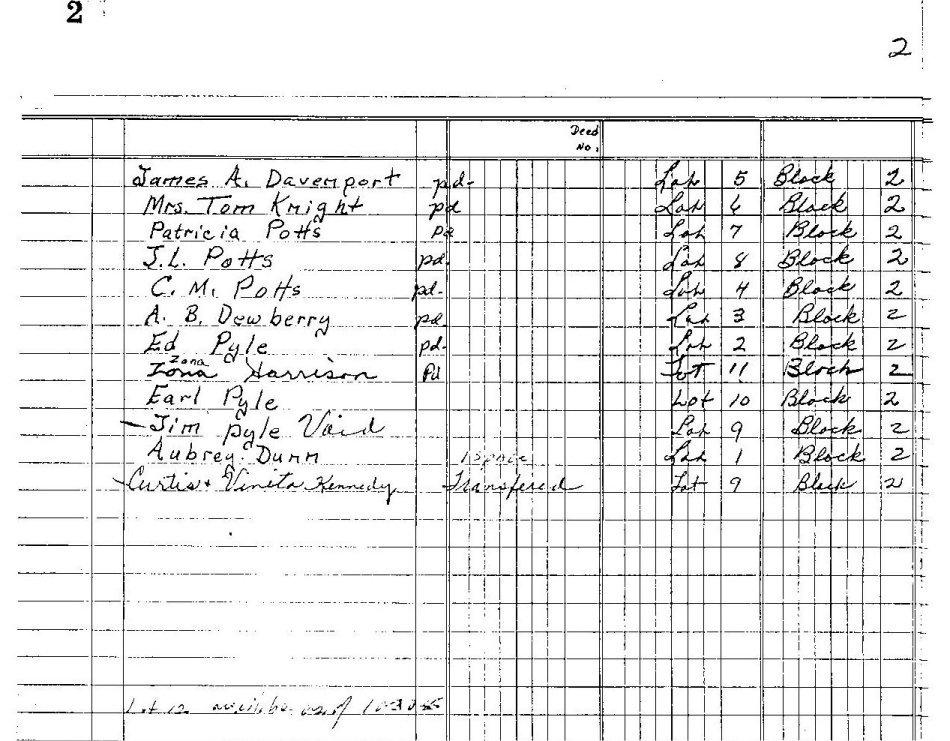 2
2
Deed No.
James A. Davenport pd. Lot 5 Block 2
Mrs. Tom Knight pd Lot 6 Block 2
Patricia Potts pd Lot 7 Block 2
J.L. Potts pd. Lot 8 Block 2
C. M. Potts pd. Lot 4 Block 2
A. B. Dewberry pd. Lot 3 Block 2
Ed Pyle pd. Lot 2 Block 2
Zona
Zona Harrison Pd Lot 11 Block 2
Earl Pyle Lot 10 Block 2
Jim Pyle Void Lot 9 Block 2
Aubrey Dunn 1 space Lot 1 Block 2
Curtis + Vinita Kennedy Transfered Lot 9 Block 2
Lot 12 as of